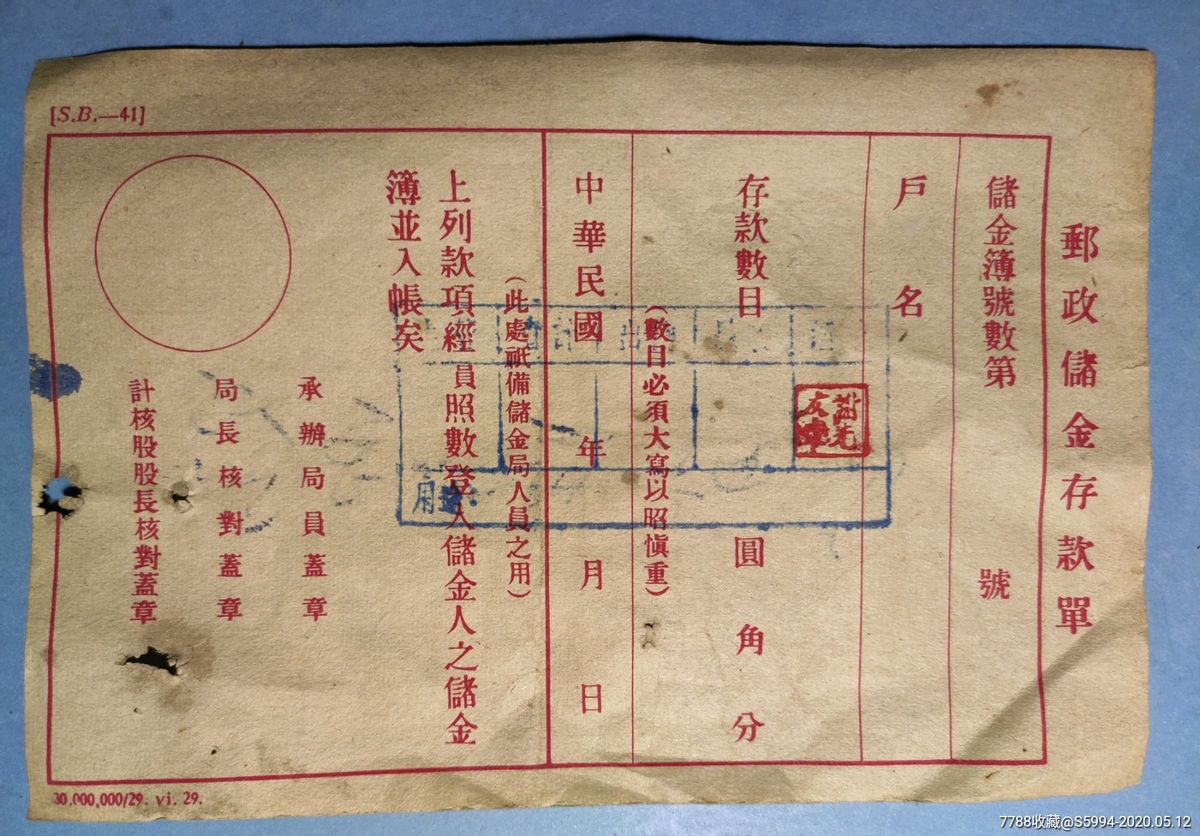 [S.B.—41]
郵政儲金存款單
儲金簿號數第 號
戶名
存款數目 圓 角 分
(數目必須大寫以昭愼重)
中華民國 年 月 日
(此處祇備儲金局人員之用)
上列款項經員照數登入儲金人之儲金
簿並入帳矣
承辦局員蓋章
局長核對蓋章
計核股股長核對蓋章
出
用途
30,000,000/29. vi. 29.
7788收藏@S5994-2020.05.12